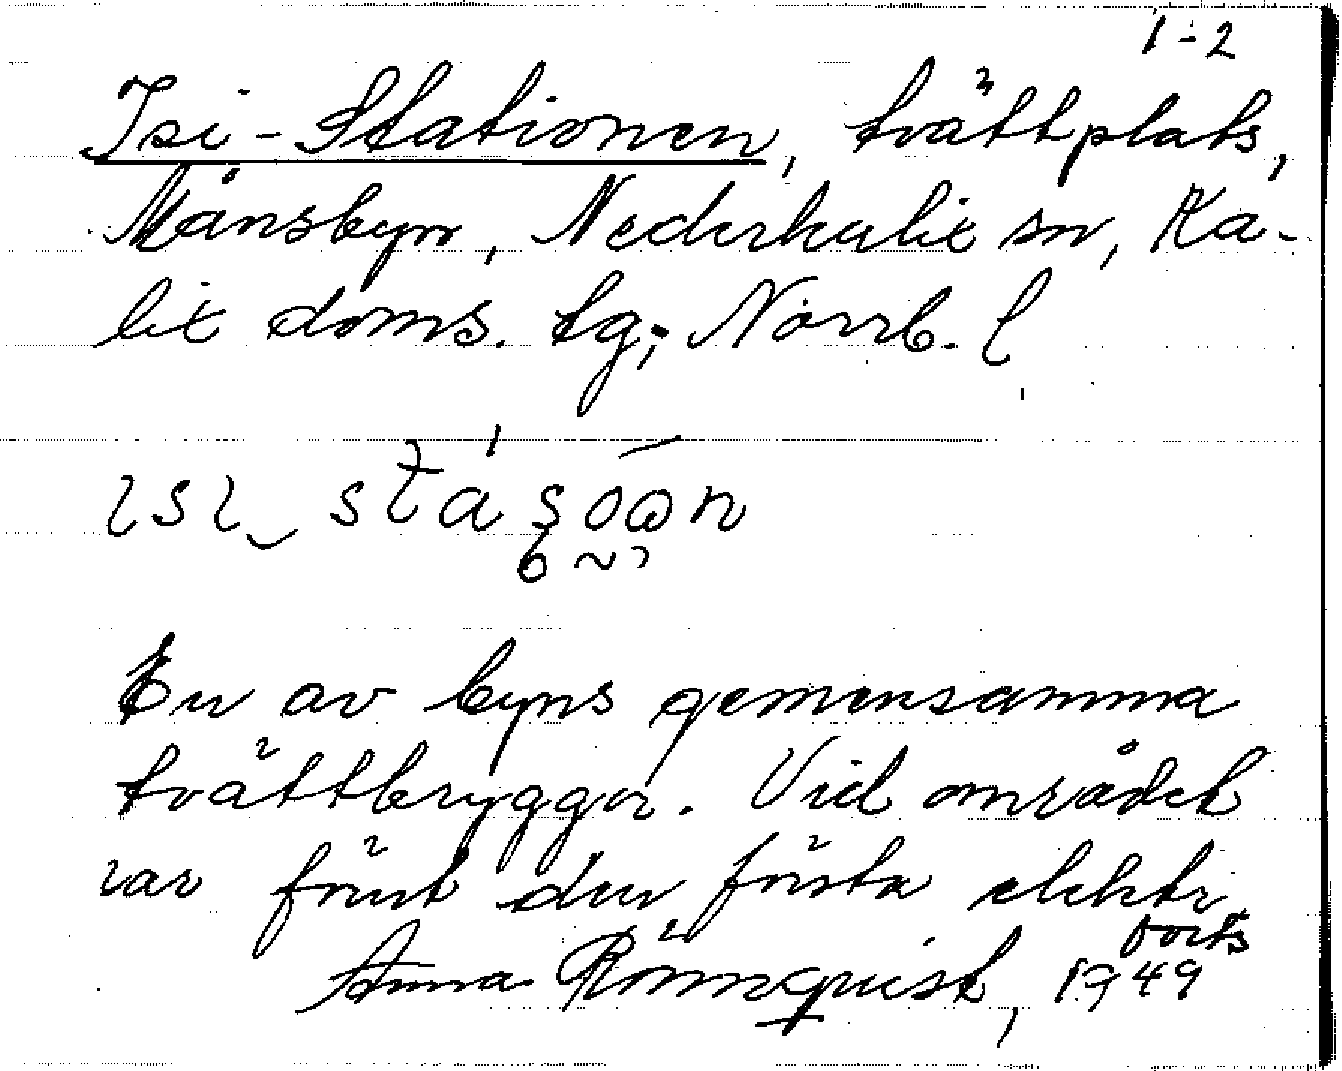 1-2
Isi-Stationen, tvättplats,
Månsbyn, Nederkalix sn, Ka-
lix doms. tg; Norrb. l
En av byns gemensamma
tvättbryggor. Vid området
var förut den första elektr.
forts
Anna Rönnqvist, 1949